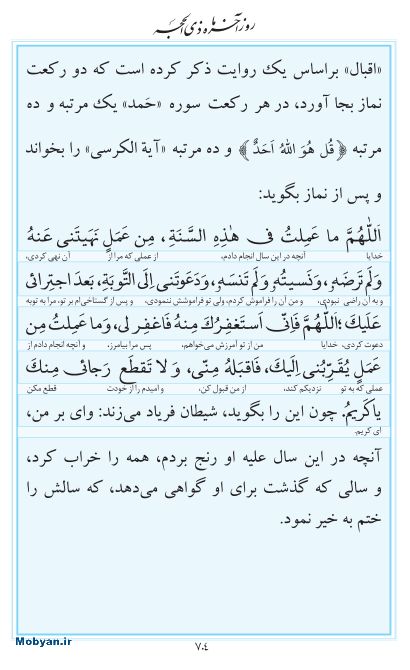 روز آخر ماه ذی الحجه
«اقبال» براساس یک روایت ذکر کرده است که دو رکعت
نماز بجا آورد، در هر رکعت سوره «حَمد» یک مرتبه و ده
مرتبه ﴿قُل هُوَ اللهُ اَحَدٌ﴾ و ده مرتبه «آیة الکرسی» را بخواند
و پس از نماز بگوید:
اَللّٰهُمَّ ما عَمِلتُ فی هٰذِهِ السَّنَةِ، مِن عَمَلٍ نَهَیتَنی عَنهُ
خدایا آنچه در این سال انجام دادم، از عملی که مرا از آن نهی کردی،
وَلَم تَرضَهُ، وَنَسیتُهُ وَلَم تَنسَهُ، وَدَعَوتَنی اِلَی التَّوبَةِ، بَعدَ اجتِرائی
و به آن راضی نبودی، و من آن را فراموش کردم، ولی تو فراموشش ننمودی، و پس از گستاخی‌ام بر تو، مرا به توبه
عَلَیکَ؛ اَللّٰهُمَّ فَاِنّی اَستَغفِرُکَ مِنهُ فَاغفِر لی، وَما عَمِلتُ مِن
دعوت کردی، خدایا من از تو آمرزش می‌خواهم، پس مرا بیامرز، و آنچه انجام دادم از
عَمَلٍ یُقَرِّبُنی اِلَیکَ، فَاقبَلهُ مِنّی، وَ لا تَقطَع رَجائی مِنکَ
عملی که به تو نزدیکم کند، از من قبول کن، و امیدم را از خودت قطع مکن
یا کَریمُ. چون این را بگوید، شیطان فریاد می‌زند: وای بر من،
ای کریم.
آنچه در این سال علیه او رنج بردم، همه را خراب کرد،
و سالی که گذشت برای او گواهی می‌دهد، که سالش را
ختم به خیر نمود.
Mobyan.ir
۷۰۴